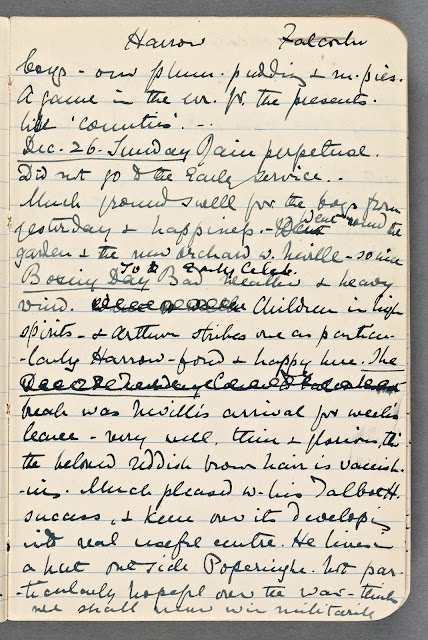 Harrow Falconhurst
boys - our plum. pudding & m. pies.
A game in the ev. for the presents.
like 'counties'. -
Dec. 26. Sunday Rain perpetual.
Did not go to the Early service..
Much ground swell for the boys from
yesterday & happiness - Went round the
garden & the new orchard w. Neville - so nice
To the Early Celeb.
Boxing Day Bad weather & heavy
wind. Children in high
spirits - & Arthur strikes one as particu-
-larly Harrow - fond & happy here. The
treat was Neville's arrival for week's
leave - very well, thin & glorious, tho
the beloved reddish brown hair is vanish-
-ing. Much pleased w. his Talbot H.
success, & keen over its developing
into real useful centre. He lives in
a hut outside Poperinghe. Not par-
-ticularly hopeful over the war - thinks
we shall never win militarily